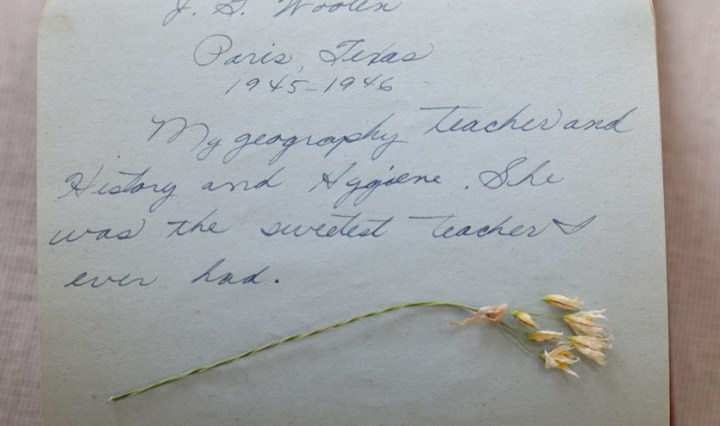 J. G. Wooten
Paris, Texas
1945-1946
My geography teacher and
History and Hygiene. She
was the sweetest teacher I
ever had.